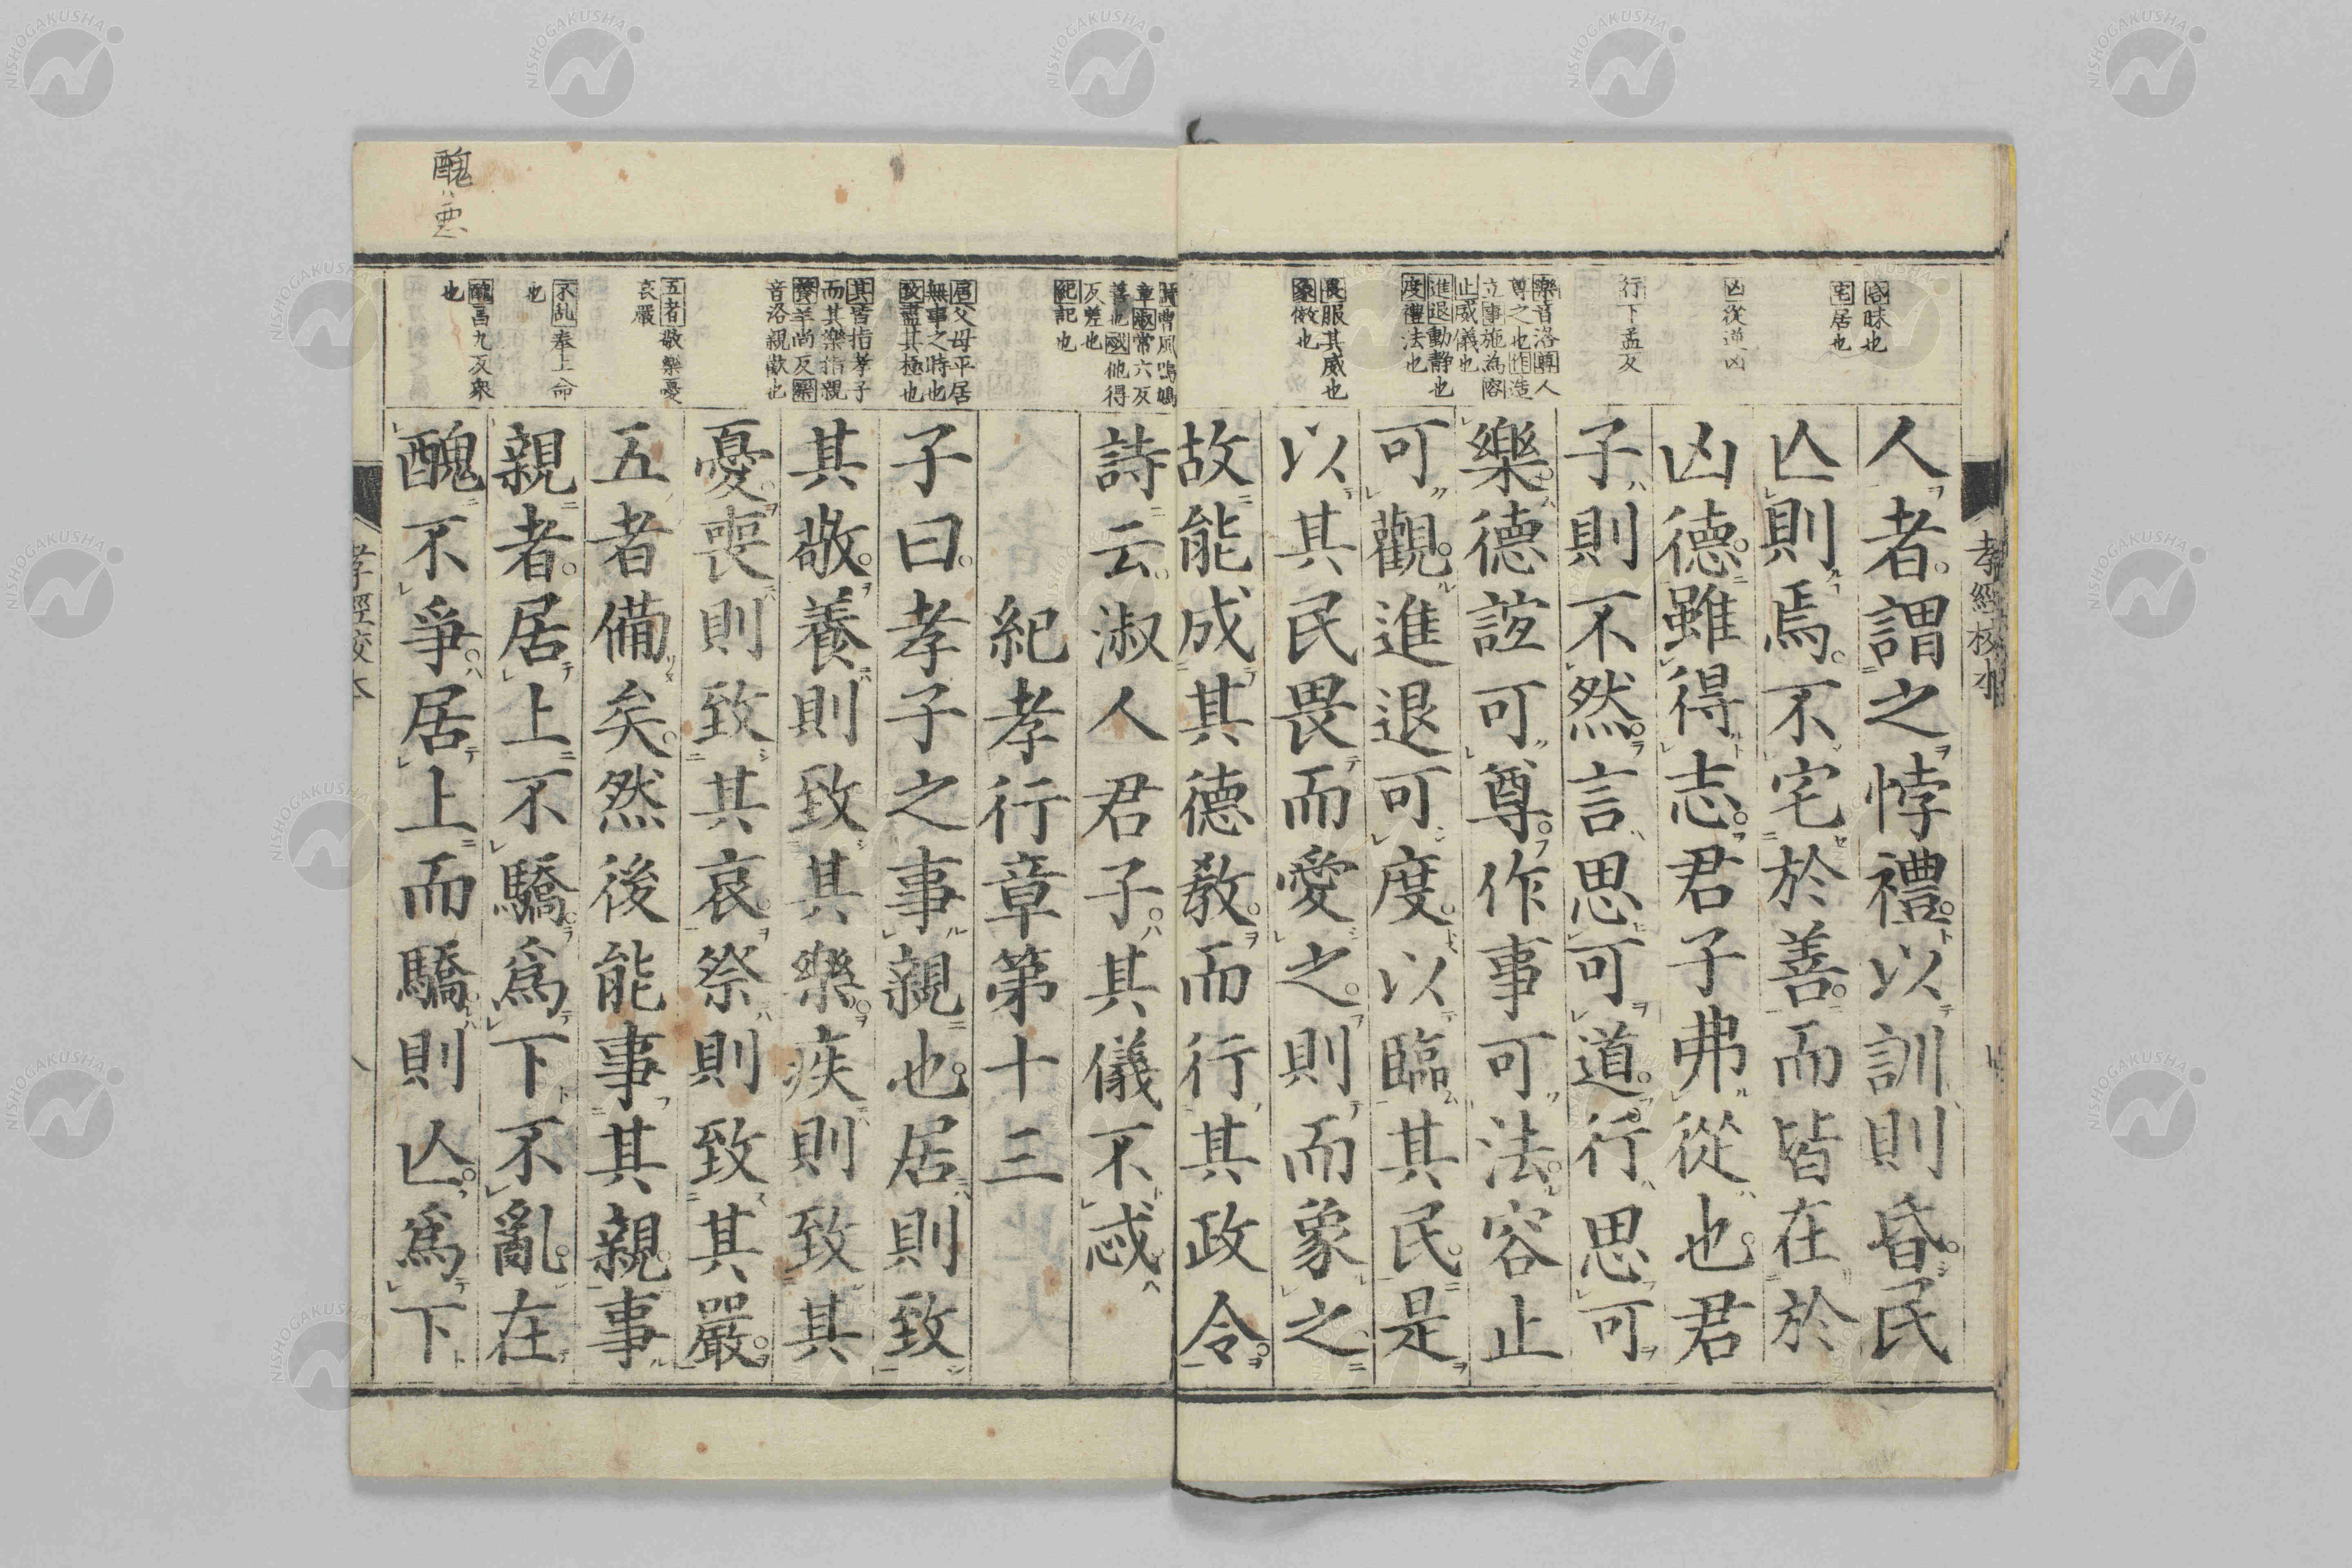 孝經校本
昏昧也
宅居也
凶從逆凶
行下孟反
樂音洛尊人
尊之也作造
立事施為容
止威儀也
進退動靜也
度禮法也
畏服其威也
象傚也
人者謂之悖禮以訓則昏民
亾則焉不宅於善而皆在於
凶德雖得志君子弗從也君
子則不然言思可道行思可
樂德誼可尊作事可法容止
可觀進退可度以臨其民是
以其民畏而愛之則而象之
故能成其德教而行其政令
詩曹風鳲鳩
章淑常六反
善也忒他得
反差也
紀記也
居父母平居
無事之時也
致盡其極也
其皆指孝子
而其樂指親
養羊尚反樂
音洛親歡也
五者敬樂憂
哀嚴
不乱奉上命
也
醜昌九反衆
也
詩云淑人君子其儀不忒
紀孝行章第十三
子曰孝子之事親也居則致
其敬養則致其樂疾則致其
憂喪則致其哀祭則致其嚴
五者備矣然後能事其親事
親者居上不驕爲下不亂在
醜不爭居上而驕則亾爲下
醜ハ悪
孝經校本
NISHOGAKUSHA